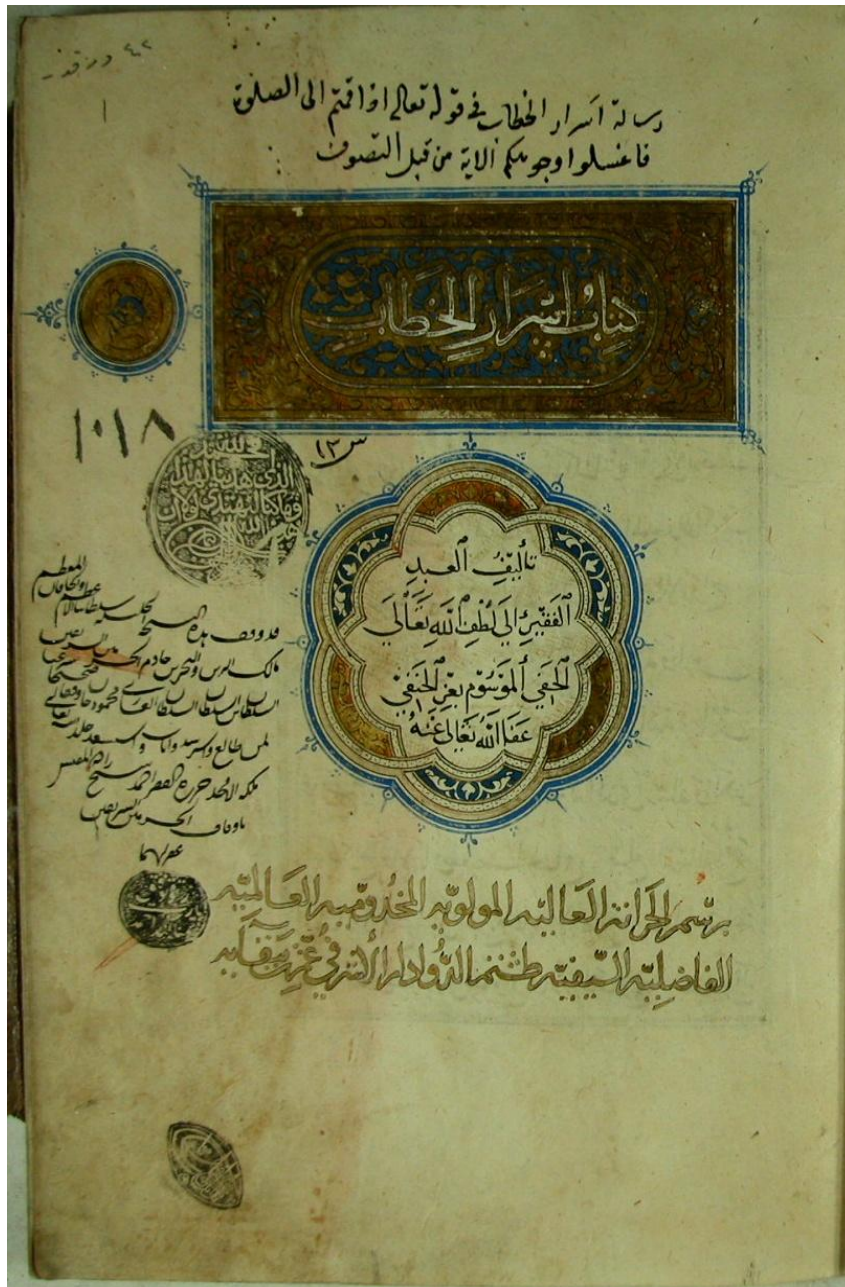 ٤٢ ورقه
١
رسالة اسرار الخطاب في قوله تعالى اذا قمتم الى الصلوة
فاغسلوا وجوهكم الاية من قبل التصوف
كِتاب اسْرَار الخِطَابِ
١٠١٨
س ١٣
الحمد لله
الذي هدينا لهذا
وما كنا لنهتدي لولا ان
هدينا الله
تأليفُ العبدِ
الفَقيرِ إلَى لُطْفِ اللّهِ تَعَالَى
الخَفِي المَوْسُومِ بعِزِ الحَنَفِي
عفَا اللّهُ تَعَالَى عَنْهُ
قد وقف هذه النسخة الجليلة سلطاننا الاعظم والخاقان المعظم
مالك البرين والبحرين خادم الحرمين الشريفين
السلطان بن السلطان السلطان الغازي محمود خان وقفا
لمن طالع
حرره الفقير احمد شيخ زاده المفتش
باوقاف الحرمين الشريفين
غفر لهما
برَسْمِ الخزانة العَاليَه المولويّه المخدُوميه العَالميّه
الفاضليّه السّيفيّه طشتمر الدّوادار الأشرفي عزّ بقَايه